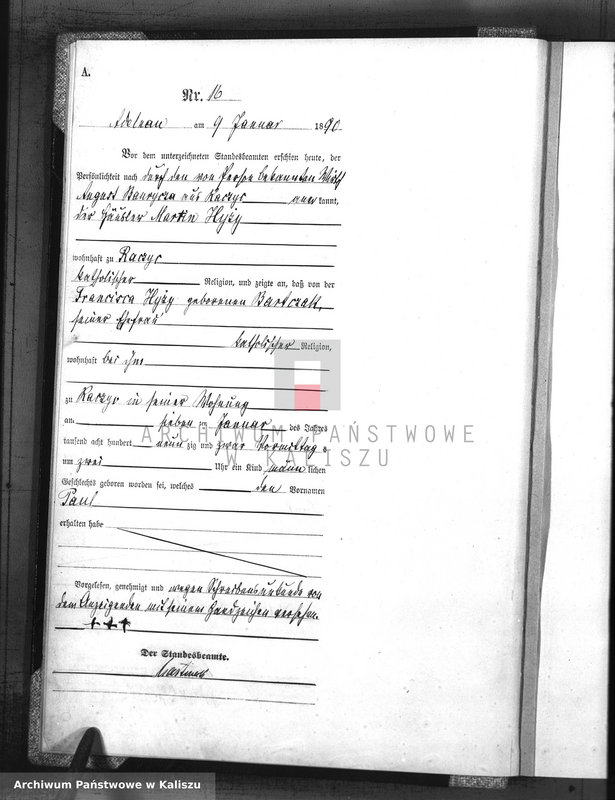 A.
Nr. 16
Adelnau am 9 Januar 1890
Vor dem unterzeichneten Standesbeamten erschien heute, der
Persönlichkeit nach durch den von Person bekannten Wirth
August aus Raczyc kannt,
der Häusler Martin Hyży
wohnhaft zu Raczyc
katholischer Religion, und zeigte an, daß von der
Francisca Hyży geborenen Bartczak,
seiner Ehefrau
katholischer Religion,
wohnhaft bei ihm
zu Raczyc in seiner Wohnung
am sieben ten Januar des Jahres
tausend acht hundert neun zig und zwar Vormittags
um zwei Uhr ein Kind männ lichen
Geschlechts geboren worden sei, welches den Vornamen
Paul
erhalten habe
Vorgelesen, genehmigt und wegen Schreibensunkunde von
dem Anzeigenden mit seinem Handzeichen versehen.
+++
Der Standesbeamte.
ARCHIWUM PAŃSTWOWE
W KALISZU
Archiwum Państwowe w Kaliszu